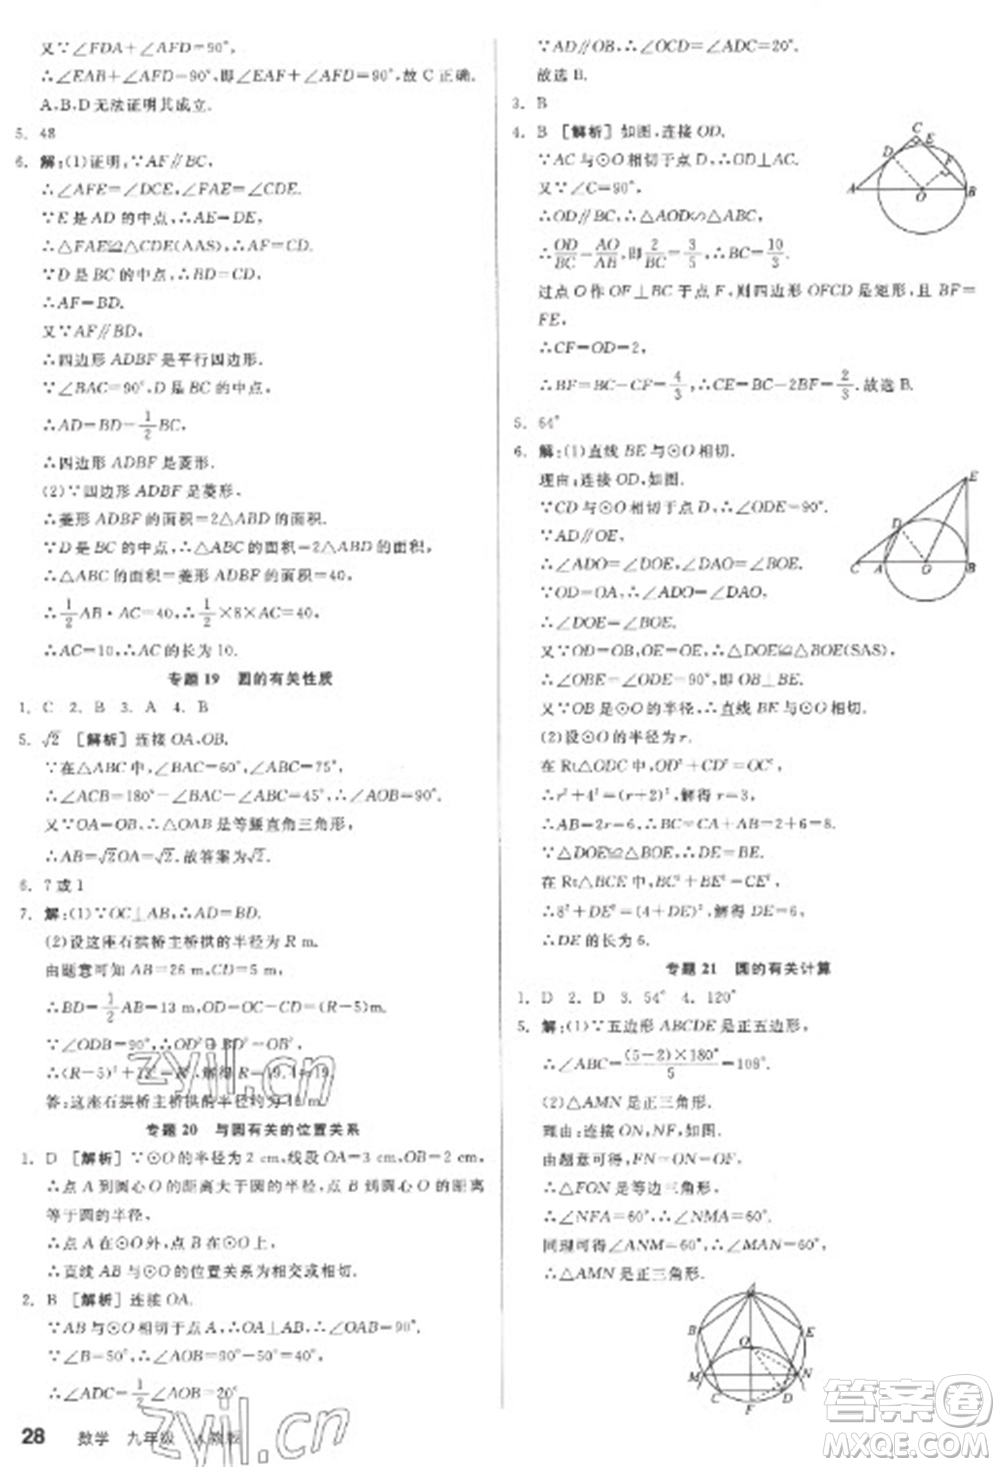 又∵∠FDA+∠AFD=90°,
∴∠EAB+∠AFD=90°,即∠EAF+∠AFD=90°,故 C 正确.
A,B,D 无法证明其成立.
5. 48
6. 解:(1)证明,∵AF∥BC,
∴∠AFE=∠DCE,∠FAE=∠CDE.
∵E 是 AD 的中点,∴AE=DE,
∴△FAE≌△CDE(AAS),∴AF=CD.
∵D 是 BC 的中点,∴BD=CD,
∴AF=BD.
又∵AF∥BD,
∴四边形 ADBF 是平行四边形.
∵∠BAC=90°,D 是 BC 的中点,
∴AD=BD=1/2 BC,
∴四边形 ADBF 是菱形.
(2)∵四边形 ADBF 是菱形,
∴菱形 ADBF 的面积=2△ABD 的面积.
∵D 是 BC 的中点,∴△ABC 的面积=2△ABD 的面积,
∴△ABC 的面积=菱形 ADBF 的面积=40,
∴1/2 AB·AC=40,∴1/2×8×AC=40,
∴AC=10,∴AC 的长为 10.
专题 19 圆的有关性质
1. C 2. B 3. A 4. B
5. √2 [解析]连接 OA,OB.
∵在△ABC 中,∠BAC=60°,∠ABC=75°,
∴∠ACB=180°-∠BAC-∠ABC=45°,∴∠AOB=90°.
又∵OA=OB,∴△OAB 是等腰直角三角形,
∴AB=√2OA=√2.故答案为√2.
6. 7 或 1
7. 解:(1)∵OC⊥AB,∴AD=BD.
(2)设这座石拱桥主桥拱的半径为 R m.
由题意可知 AB=26 m,CD=5 m,
∴BD=1/2 AB=13 m,OD=OC-CD=(R-5)m.
∵∠ODB=90°,∴OD²+BD²=OB²,
∴(R-5)²+13²=R²,解得 R=19.4≈19.
答:这座石拱桥主桥拱的半径约为 19 m.
专题 20 与圆有关的位置关系
1. D [解析]∵⊙O 的半径为 2 cm,线段 OA=3 cm,OB=2 cm,
∴点 A 到圆心 O 的距离大于圆的半径,点 B 到圆心 O 的距离
等于圆的半径,
∴点 A 在⊙O 外,点 B 在⊙O 上,
∴直线 AB 与⊙O 的位置关系为相交或相切.
2. B [解析]连接 OA.
∵AB 与⊙O 相切于点 A,∴OA⊥AB,∴∠OAB=90°.
∵∠B=50°,∴∠AOB=90°-50°=40°,
∴∠ADC=1/2∠AOB=20°
28 数学 九年级 人教版
∵AD∥OB,∴∠OCD=∠ADC=20°.
故选 B.
3. B
4. B [解析]如图,连接 OD.
∵AC 与⊙O 相切于点 D,∴OD⊥AC.
又∵∠C=90°,
∴OD∥BC,∴△AOD∽△ABC,
∴OD/BC=AO/AB,即 2/BC=3/5,∴BC=10/3.
过点 O 作 OF⊥BC 于点 F,则四边形 OFCD 是矩形,且 BF=
FE,
∴CF=OD=2,
∴BF=BC-CF=4/3,∴CE=BC-2BF=2/3.故选 B.
5. 64°
6. 解:(1)直线 BE 与⊙O 相切.
理由:连接 OD,如图所示.
∵CD 与⊙O 相切于点 D,∴∠ODE=90°.
∵AD∥OE,
∴∠ADO=∠DOE,∠DAO=∠EOB.
∵OD=OA,∴∠ADO=∠DAO,
∴∠DOE=∠BOE.
又∵OD=OB,OE=OE,∴△DOE≌△BOE(SAS),
∴∠OBE=∠ODE=90°,∴OB⊥BE.
又∵OB 是⊙O 的半径,∴直线 BE 与⊙O 相切.
(2)设⊙O 的半径为 r.
在 Rt△ODC 中,OD²+CD²=OC²,
∴r²+4²=(r+2)²,∴r=3,
∴AB=2r=6,∴BC=CA+AB=2+6=8.
∵△DOE≌△BOE,∴DE=BE.
在 Rt△BCE 中,BC²+BE²=CE²,
∴8²+DE²=(4+DE)²,解得 DE=6,
∴DE 的长为 6.
专题 21 圆的有关计算
1. D 2. D 3. 54° 4. 120°
5. 解:(1)∵五边形 ABCDE 是正五边形,
∴∠ABC=(5-2)×180°/5=108°.
(2)△AMN 是正三角形.
理由:连接 ON,NF,如图.
由题意可得,FN=ON=OF,
∴△FON 是等边三角形,
∴∠NFA=60°,∴∠NMA=60°.
同理可得∠ANM=60°,∴∠MAN=60°,
∴△AMN 是正三角形.
zyjl.cn
答案圈